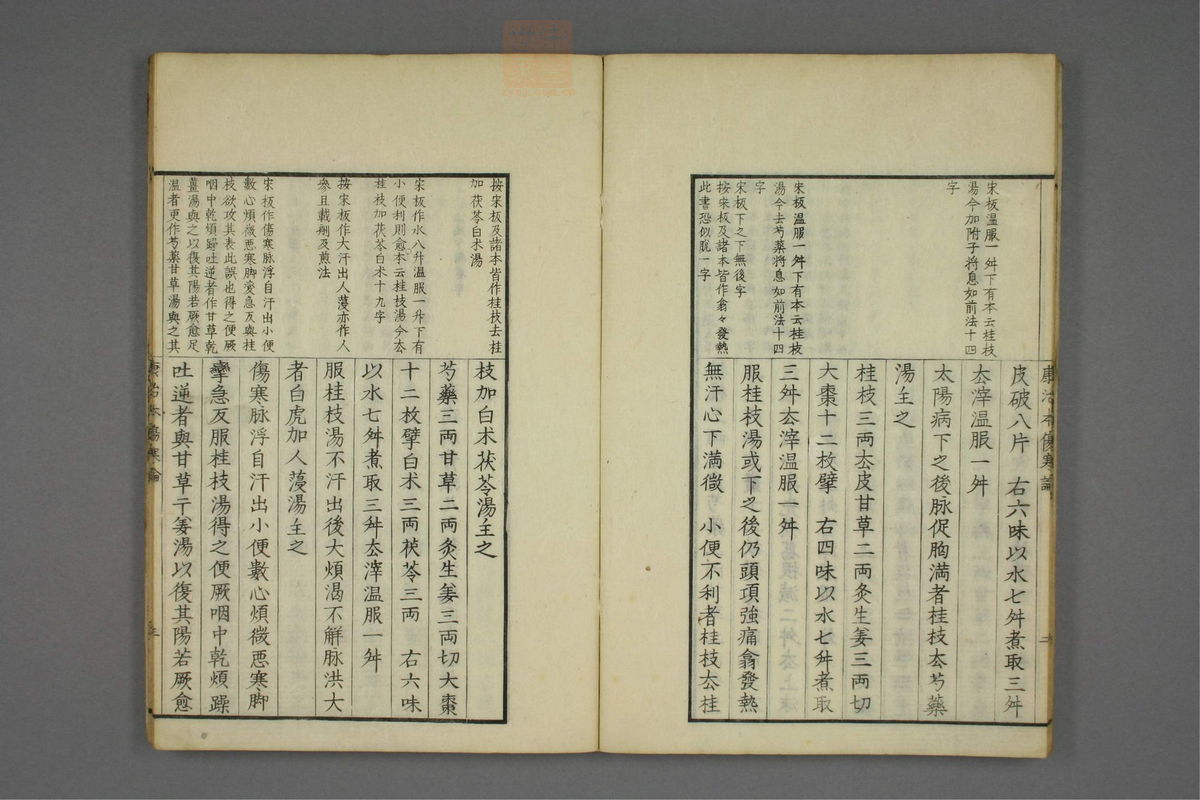 宋板温服一舛下有本云桂枝
湯今加附子将息如前法十四
字
宋板温服一舛下有本云桂枝
湯今去芍薬将息如前法十四
字
宋板下之下無後字
按宋板及諸本皆作翕々發熱
此書恐似脱一字
康治本傷寒論
皮破八片 右六味以水七舛煮取三舛
厺滓温服一舛
太陽病下之後脉促胸満者桂枝厺芍藥
湯主之
桂枝三両厺皮甘草二両灸生姜三両切
大棗十二枚擘 右四味以水七舛煮取
三舛厺滓温服一舛
服桂枝湯或下之後仍頭項強痛翕發熱
無汗心下満微 小便不利者桂枝厺桂
二
按宋板及諸本皆作桂枝去桂
加茯苓白术湯
宋板作水八升温服一升下有
小便利則愈本云桂枝湯今厺
桂枝加茯苓白术十九字
按宋板作大汗出人薓亦作人
參且載剤及煎法
宋板作傷寒脉浮自汗出小便
數心煩微悪寒脚攣急反與桂
枝欲攻其表此誤也得之便厥
咽中乾煩躁吐逆者作甘草乾
薑湯與之以復其陽若厥愈足
温者更作芍薬甘草湯與之其
枝加白术茯苓湯主之
芍藥三両甘草二両灸生姜三両切大棗
十二枚擘白术三両茯苓三両 右六味
以水七舛煮取三舛厺滓温服一舛
服桂枝湯不汗出後大煩渴不解脉洪大
者白虎加人薓湯主之
傷寒脉浮自汗出小便數心煩微悪寒脚
攣急反服桂枝湯得之便厥咽中乾煩躁
吐逆者與甘草干姜湯以復其陽若厥愈
康治本傷寒論
三